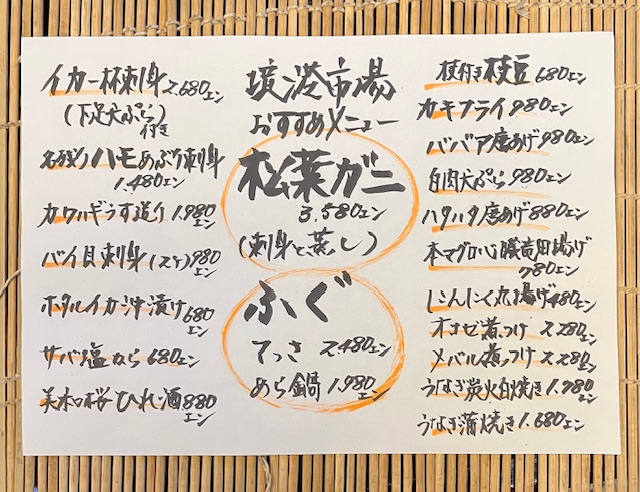 境港市場
おすすめメニュー
松葉ガニ
3.580エン
(刺身と蒸し)
ふぐ
てっさ 2.480エン
あら鍋 1.980エン
イカ一杯刺身 2.680エン
(下足天ぷら)
付き
名残りハモあぶり刺身
1.480エン
カワハギうす造り 1.980エン
バイ貝刺身(スケ) 980エン
ホタルイカ沖漬け 680エン
サバ塩なら 680エン
美水桜ひれ酒 880エン
枝付き枝豆 680エン
カキフライ 980エン
ババア唐あげ 980エン
白肉天ぷら 980エン
ハタハタ唐あげ 880エン
本マグロ心臓竜田揚げ
780エン
にんにく丸揚げ 480エン
オコゼ煮つけ 2.280エン
メバル煮つけ 2.280エン
うなぎ炭火白焼き 1.780エン
うなぎ蒲焼き 1.680エン